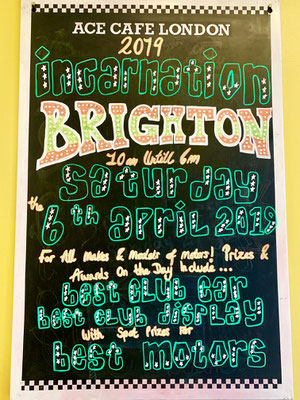 ACE CAFE LONDON
2019
incarnation
BRIGHTON
10am Untill 6m
Saturday
the 6th april 2019
For All Makes & Models of motors! Prizes &
Awards On the Day Include ...
best club car
best club display
With Spot Prizes For
best motors